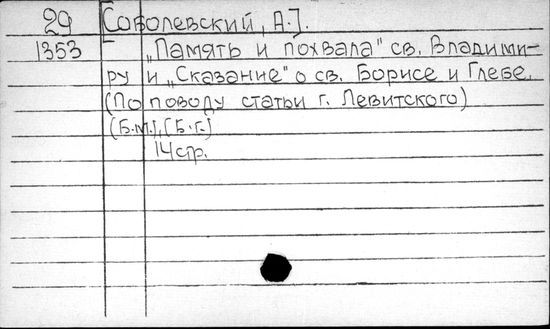 29 [Соболевский, А.].
1353 „Память и похвала" св. Владими-
ру и „Сказание" о св. Борисе и Глебе.
(По поводу статьи г. Левитского)
(Б.м.), [Б.г.]
14 стр.